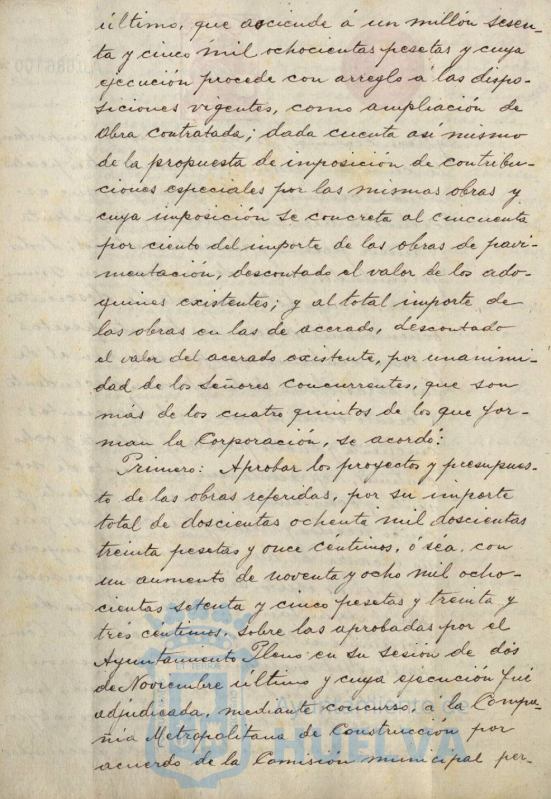 último, que asciende á un millón sesen-
ta y cinco mil ochocientas pesetas y cuya
ejecución procede con arreglo a las dispo-
siciones vigentes, como ampliación de
obra contratada; dada cuenta así mismo
de la propuesta de imposición de contribu-
ciones especiales por las mismas obras y
cuya imposición se concreta al cincuenta
por ciento del importe de las obras de pavi-
mentación, descontado el valor de los ado-
quines existentes; y al total importe de
las obras en las de acerado, descontado
el valor del acerado existente, por unanimi-
dad de los Señores concurrentes, que son
más de los cuatro quintos de los que for-
man la Corporación, se acordó:
Primero: Aprobar los proyectos y presupues-
to de las obras referidas, por su importe
total de doscientas ochenta mil doscientas
treinta pesetas y once céntimos, ó séa, con
un aumento de noventa y ocho mil ocho-
cientas setenta y cinco pesetas y treinta y
tres céntimos, sobre las aprobadas por el
Ayuntamiento Pleno en su sesión de dós
de Noviembre último y cuya ejecución fué
adjudicada, mediante concurso, á la Compa-
ñia Metropolitana de Construcción por
acuerdo de la Comisión municipal per-
HUELVA